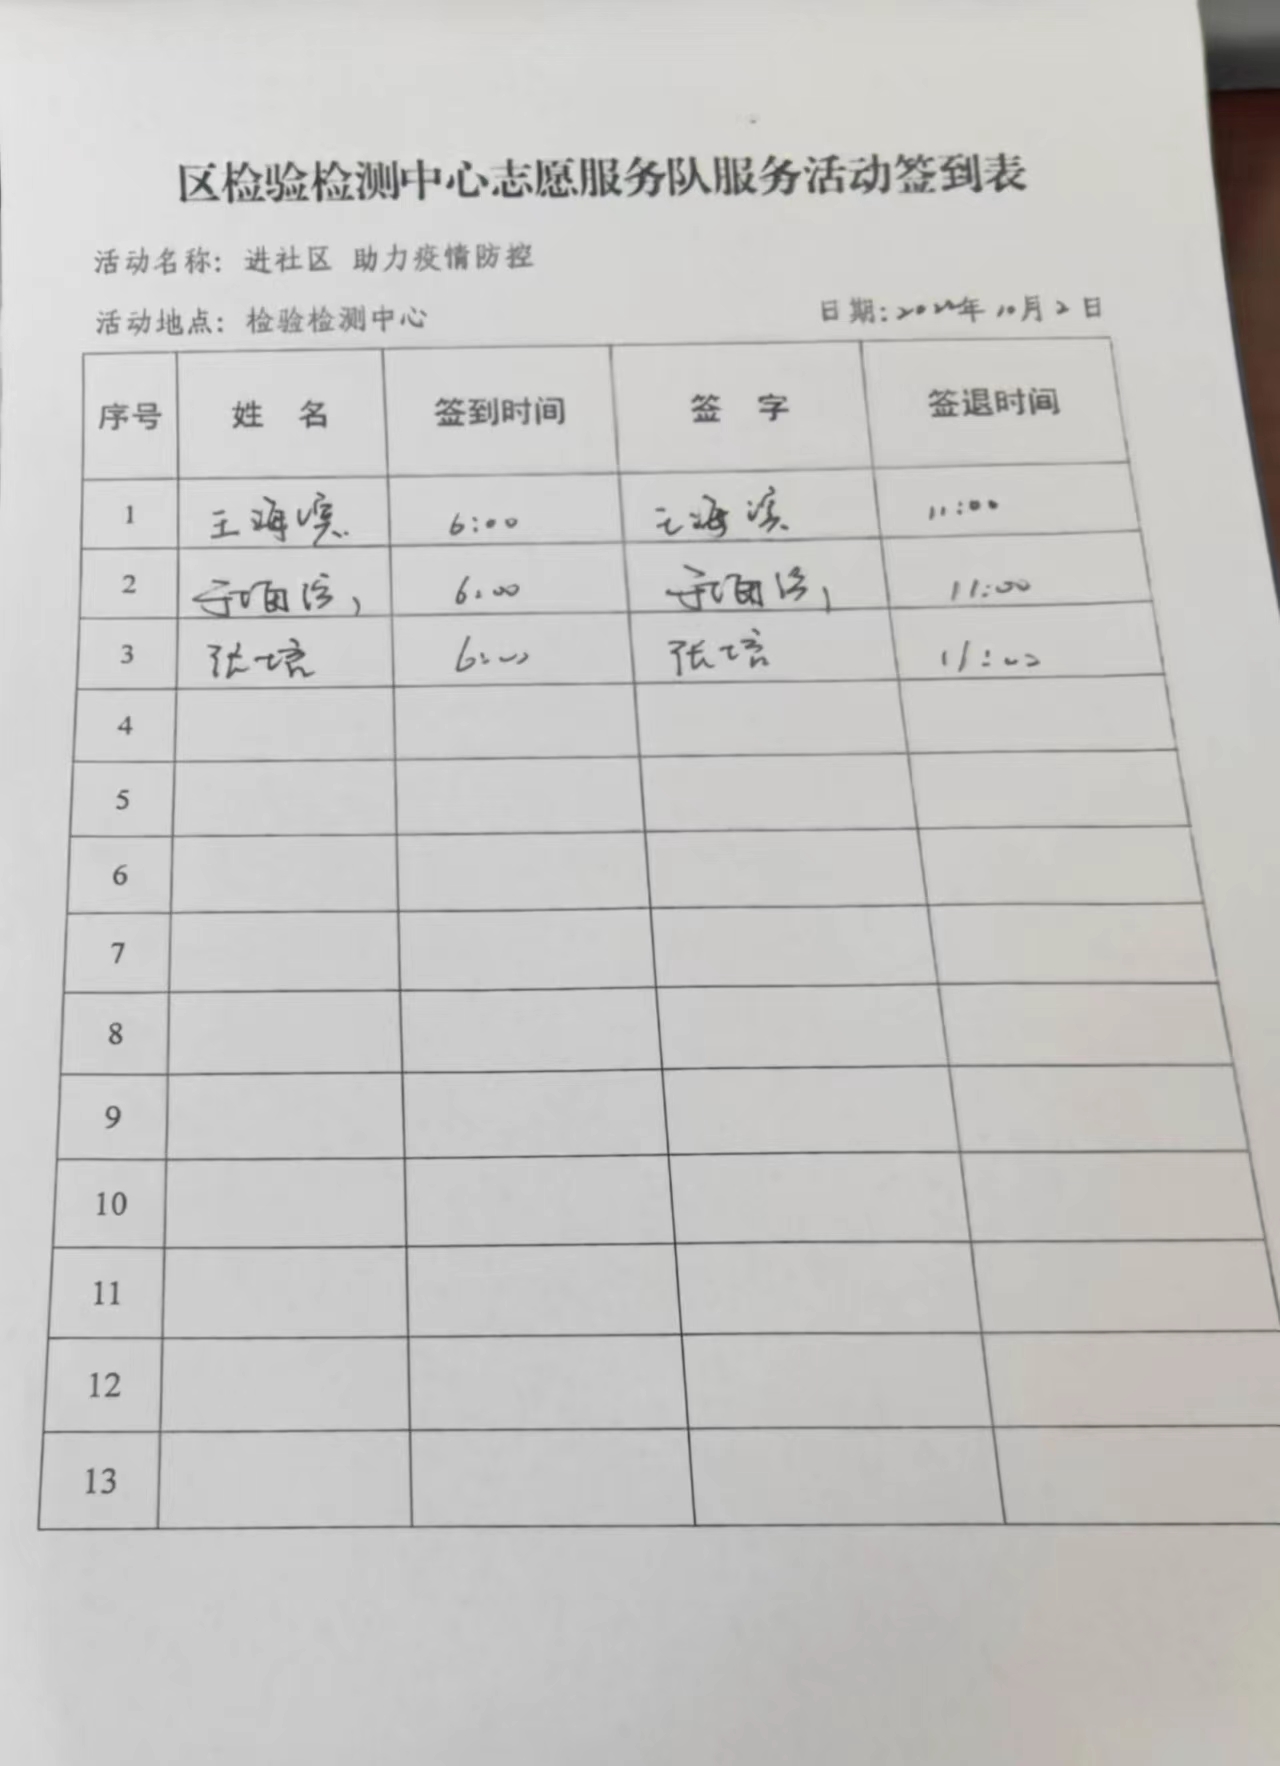 区检验检测中心志愿服务队服务活动签到表
活动名称：进社区 助力疫情防控
活动地点：检验检测中心 日期：2022年10月2日
序号 姓 名 签到时间 签 字 签退时间
1 王海滨 6:00 王海滨 11:00
2 6:00 11:00
3 张培 6:00 张培 11:00
4
5
6
7
8
9
10
11
12
13